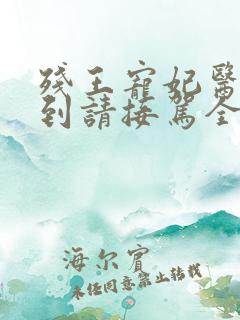 殘王寵妃醫
到請接駕全
海尔宾
未经同意禁止转载